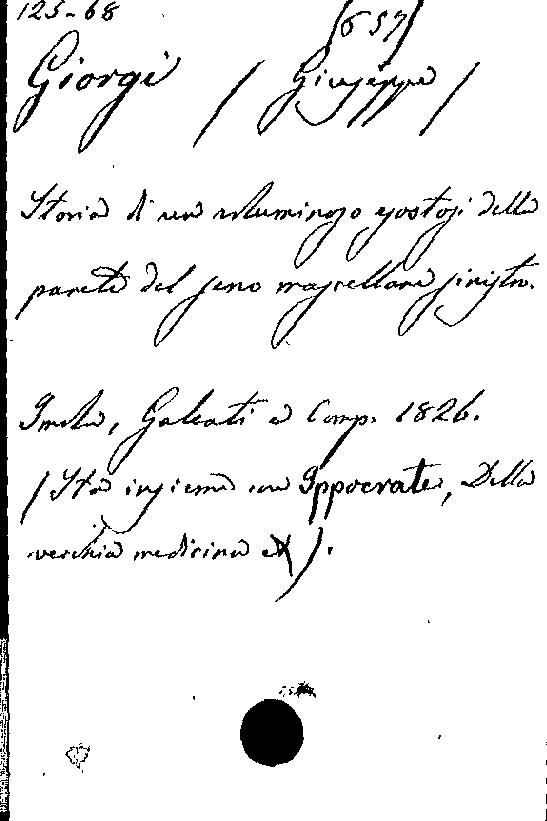 125-68
(657)
Giorgi (Giuseppe)
Storia di una voluminoso esostosi della
parete del seno mascellare sinistr.
Imola, Galeati e Comp. 1826.
(Sta insieme con Ippocrate, Della
vecchia medicina).